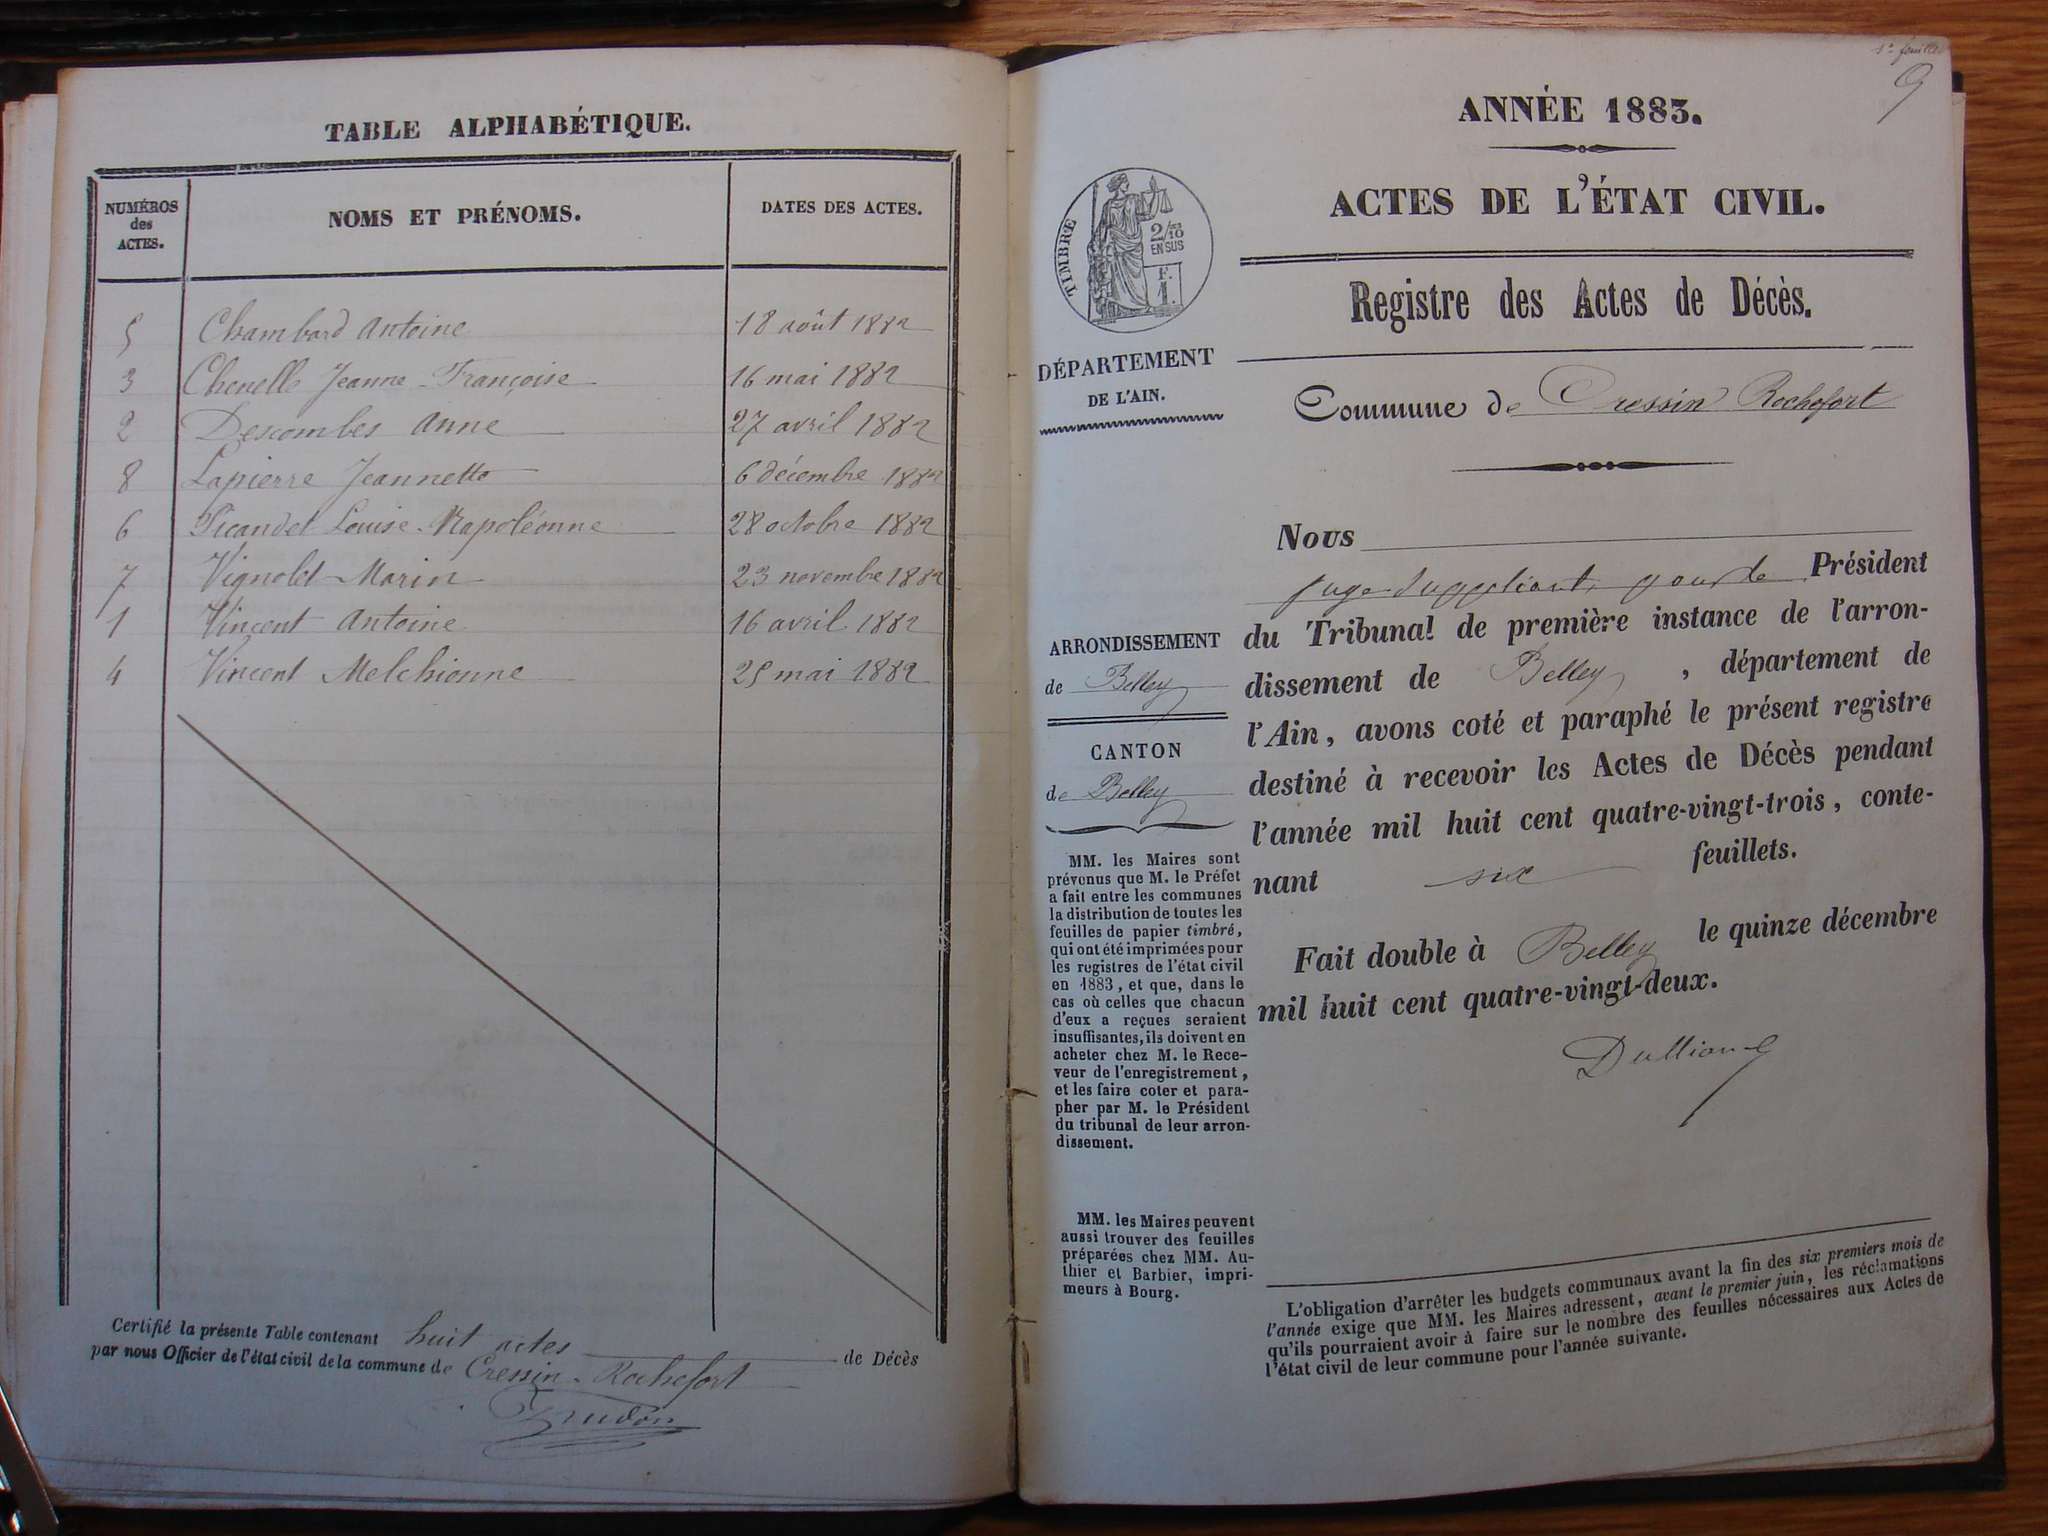 TABLE ALPHABÉTIQUE.
NUMÉROS
des
ACTES.
NOMS ET PRÉNOMS.
DATES DES ACTES.
5 Chambard Antoine 18 août 1882
3 Chenelle Jeanne-Françoise 16 mai 1882
2 Descombes Anne 27 avril 1882
8 Lapierre Jeannette 6 décembre 1882
6 Picandet Louise-Napoléonne 28 octobre 1882
7 Vignolet Marin 23 novembre 1882
1 Vincent Antoine 16 avril 1882
4 Vincent Melchionne 25 mai 1882
Certifié la présente Table contenant huit actes de Décès
par nous Officier de l'état civil de la commune de Cressin-Rochefort
1er feuillet
ANNÉE 1883.
ACTES DE L'ÉTAT CIVIL.
TIMBRE
2/10
EN SUS
F.
1.
Registre des Actes de Décès.
DÉPARTEMENT
DE L'AIN.
Commune de Cressin Rochefort
ARRONDISSEMENT
de Belley
CANTON
de Belley
MM. les Maires sont
prévenus que M. le Préfet
a fait entre les communes
la distribution de toutes les
feuilles de papier timbré,
qui ont été imprimées pour
les registres de l'état civil
en 1883, et que, dans le
cas où celles que chacun
d'eux a reçues seraient
insuffisantes, ils doivent en
acheter chez M. le Rece-
veur de l'enregistrement,
et les faire coter et para-
pher par M. le Président
du tribunal de leur arron-
dissement.
MM. les Maires peuvent
aussi trouver des feuilles
préparées chez MM. Au-
thier et Barbier, impri-
meurs à Bourg.
Nous
juge suppléant, pour le Président
du Tribunal de première instance de l'arron-
dissement de Belley, département de
l'Ain, avons coté et paraphé le présent registre
destiné à recevoir les Actes de Décès pendant
l'année mil huit cent quatre-vingt-trois, conte-
nant six feuillets.
Fait double à Belley le quinze décembre
mil huit cent quatre-vingt-deux.
L'obligation d'arrêter les budgets communaux avant la fin des six premiers mois de
l'année exige que MM. les Maires adressent, avant le premier juin, les réclamations
qu'ils pourraient avoir à faire sur le nombre des feuilles nécessaires aux Actes de
l'état civil de leur commune pour l'année suivante.